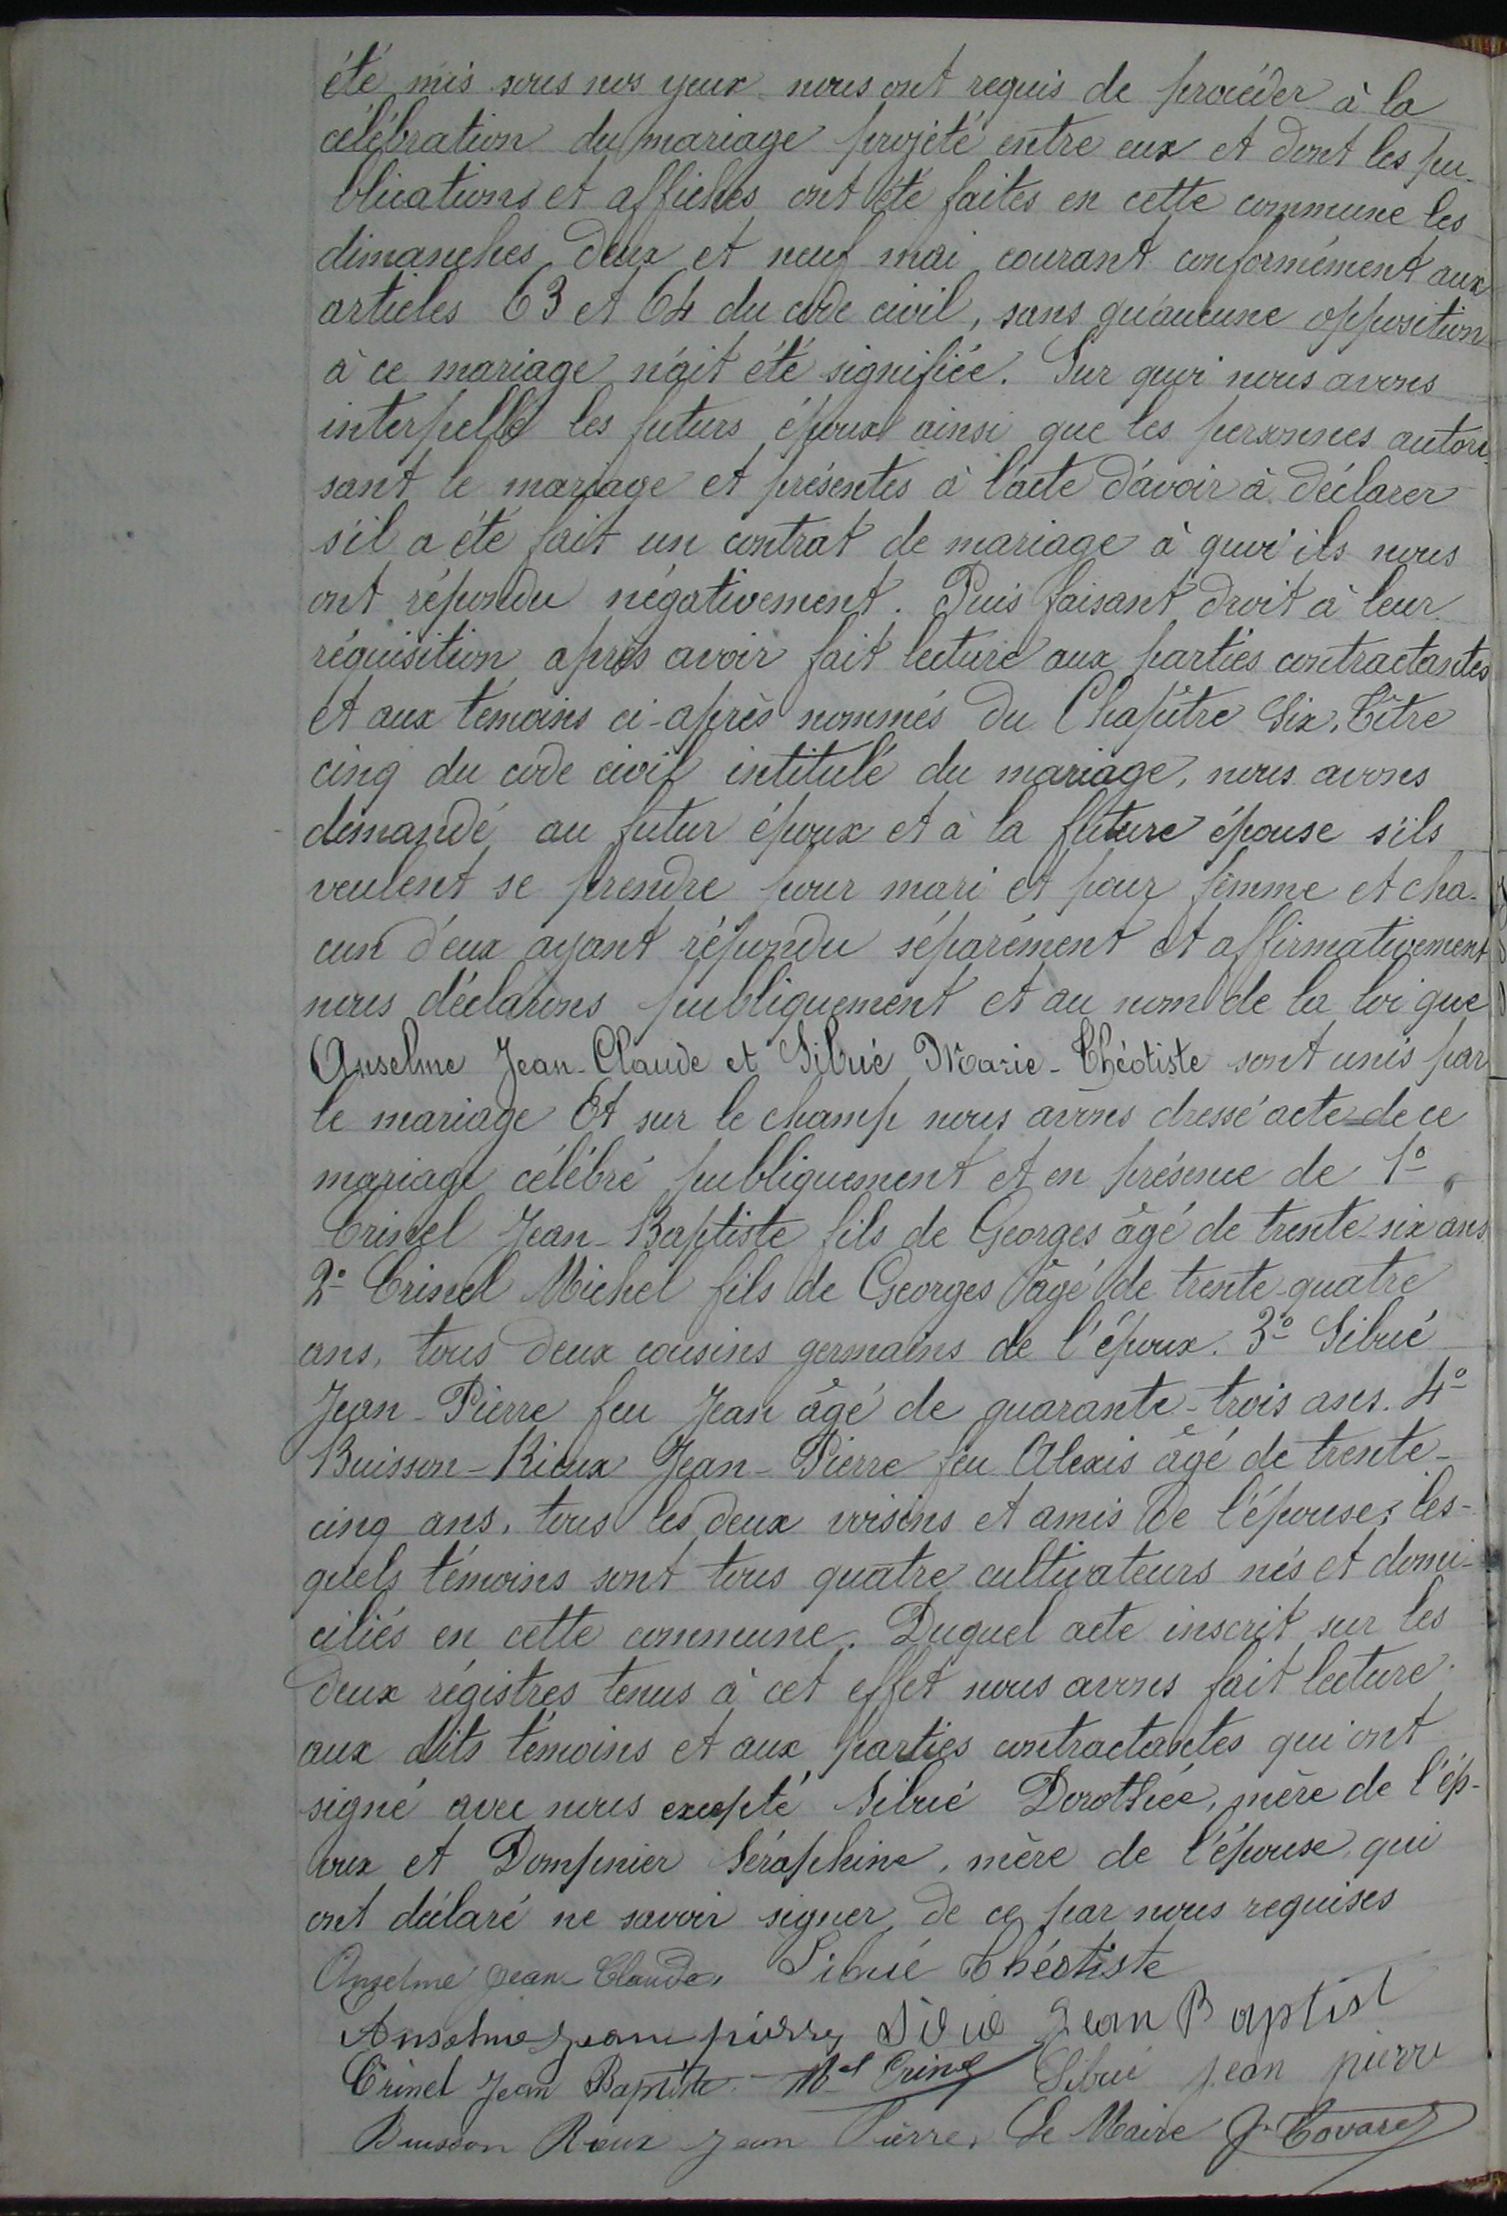 été mis sous nos yeux nous ont requis de procéder à la
célébration du mariage projeté entre eux et dont les pu-
blications et affiches ont été faites en cette commune les
dimanches deux et neuf mai courant conformément aux
articles 63 et 64 du code civil, sans qu'aucune opposition
à ce mariage n'ait été signifiée. Sur quoi nous avons
interpellé les futurs époux ainsi que les personnes autori-
sant le mariage et présentes à l'acte d'avoir à déclarer
s'il a été fait un contrat de mariage à quoi ils nous
ont répondu négativement. Puis faisant droit à leur
réquisition après avoir fait lecture aux parties contractantes
et aux témoins ci-après nommés du Chapître Six, Titre
cinq du code civil intitulé du mariage, nous avons
demandé au futur époux et à la future épouse s'ils
veulent se prendre pour mari et pour femme et cha-
cun d'eux ayant répondu séparément et affirmativement
nous déclarons publiquement et au nom de la loi que
Anselme Jean-Claude et Sibué Marie-Théotiste sont unis par
le mariage Et sur le champ nous avons dressé acte de ce
mariage célébré publiquement et en présence de 1º
Crinel Jean-Baptiste fils de Georges âgé de trente-six ans
2º Crinel Michel fils de Georges âgé de trente-quatre
ans, tous deux cousins germains de l'époux. 3º Sibué
Jean-Pierre feu Jean âgé de quarante-trois ans. 4º
Buisson-Rioux Jean-Pierre feu Alexis âgé de trente-
cinq ans, tous les deux voisins et amis de l'épouse; les-
quels témoins sont tous quatre cultivateurs nés et domi-
ciliés en cette commune. Duquel acte inscrit sur les
deux régistres tenus à cet effet nous avons fait lecture
aux dits témoins et aux parties contractantes qui ont
signé avec nous excepté Sibué Dorothée, mère de l'ép-
oux et Dompnier Séraphine, mère de l'épouse, qui
ont déclaré ne savoir signer, de ce par nous requises
Anselme Jean Claude, Sibué Théotiste
Anselme jean pierre, Sibué Jean Baptist
Crinel Jean Baptiste - Mel Crinel Sibué jean pierre
Buisson Roux Jean Pierre, Le Maire Jn Covarel